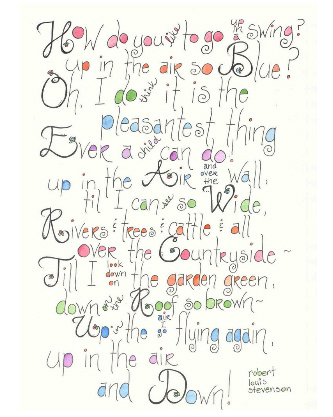 How do you like to go up in a swing?
up in the air so Blue?
Oh, I do think it is the
pleasantest thing
Ever a child can do!
up in the Air and over the Wall,
til I can see so Wide,
Rivers & trees & cattle & all
over the Countryside ~
Till I look down on the garden green,
down on the Roof so brown ~
Up in the air I go flying again,
up in the air
and Down!
robert
louis
stevenson